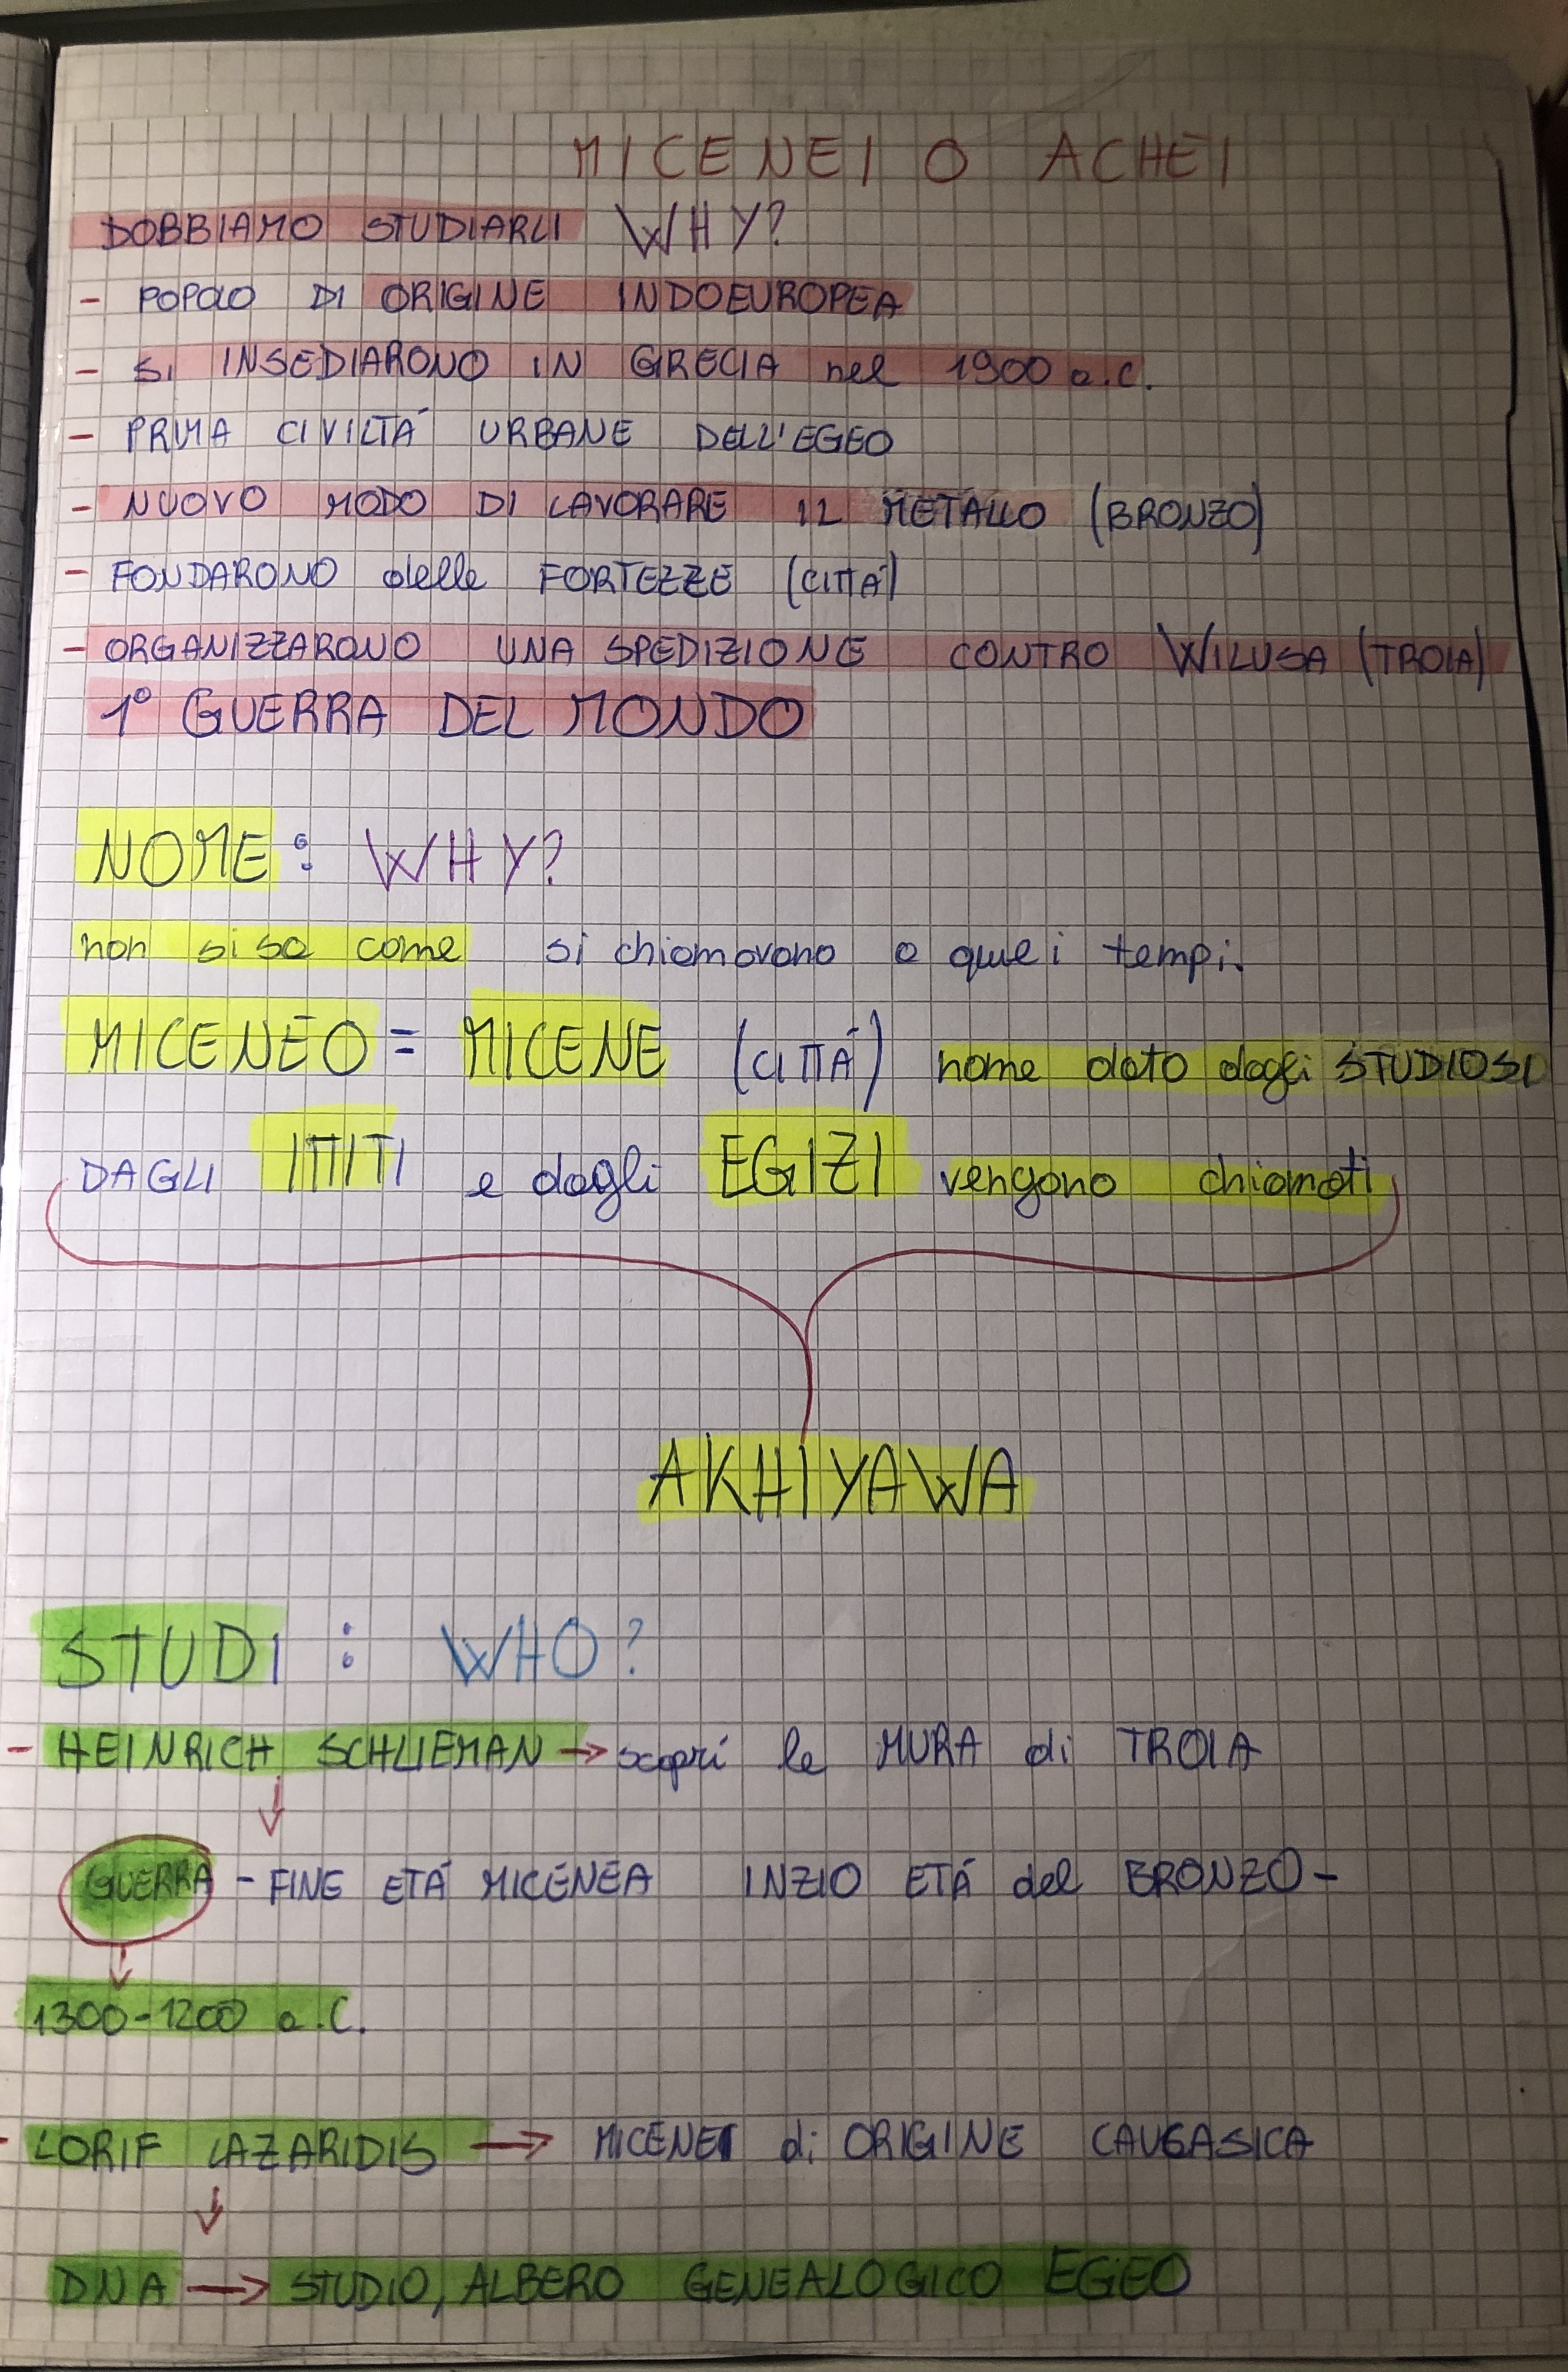 MICENEI O ACHEI
DOBBIAMO STUDIARLI WHY?
- POPOLO DI ORIGINE INDOEUROPEA
- SI INSEDIARONO IN GRECIA nel 1900 a.C.
- PRIMA CIVILTÁ URBANE DELL'EGEO
- NUOVO MODO DI LAVORARE IL METALLO (BRONZO)
- FONDARONO delle FORTEZZE (CITTÁ)
- ORGANIZZARONO UNA SPEDIZIONE CONTRO WILUSA (TROIA)
1° GUERRA DEL MONDO
NOME: WHY?
non si sa come si chiamavano a quei tempi.
MICENEO = MICENE (CITTÁ) nome dato dagli STUDIOSI
DAGLI ITTITI e dagli EGIZI vengono chiamati
AKHIYAWA
STUDI: WHO?
- HEINRICH SCHLIEMAN → scoprí le MURA di TROIA
↓
GUERRA - FINE ETÁ MICENEA INZIO ETÁ del BRONZO -
↓
1300-1200 a.C.
- LORIF LAZARIDIS → MICENEI di ORIGINE CAUCASICA
↓
DNA → STUDIO, ALBERO GENEALOGICO EGEO